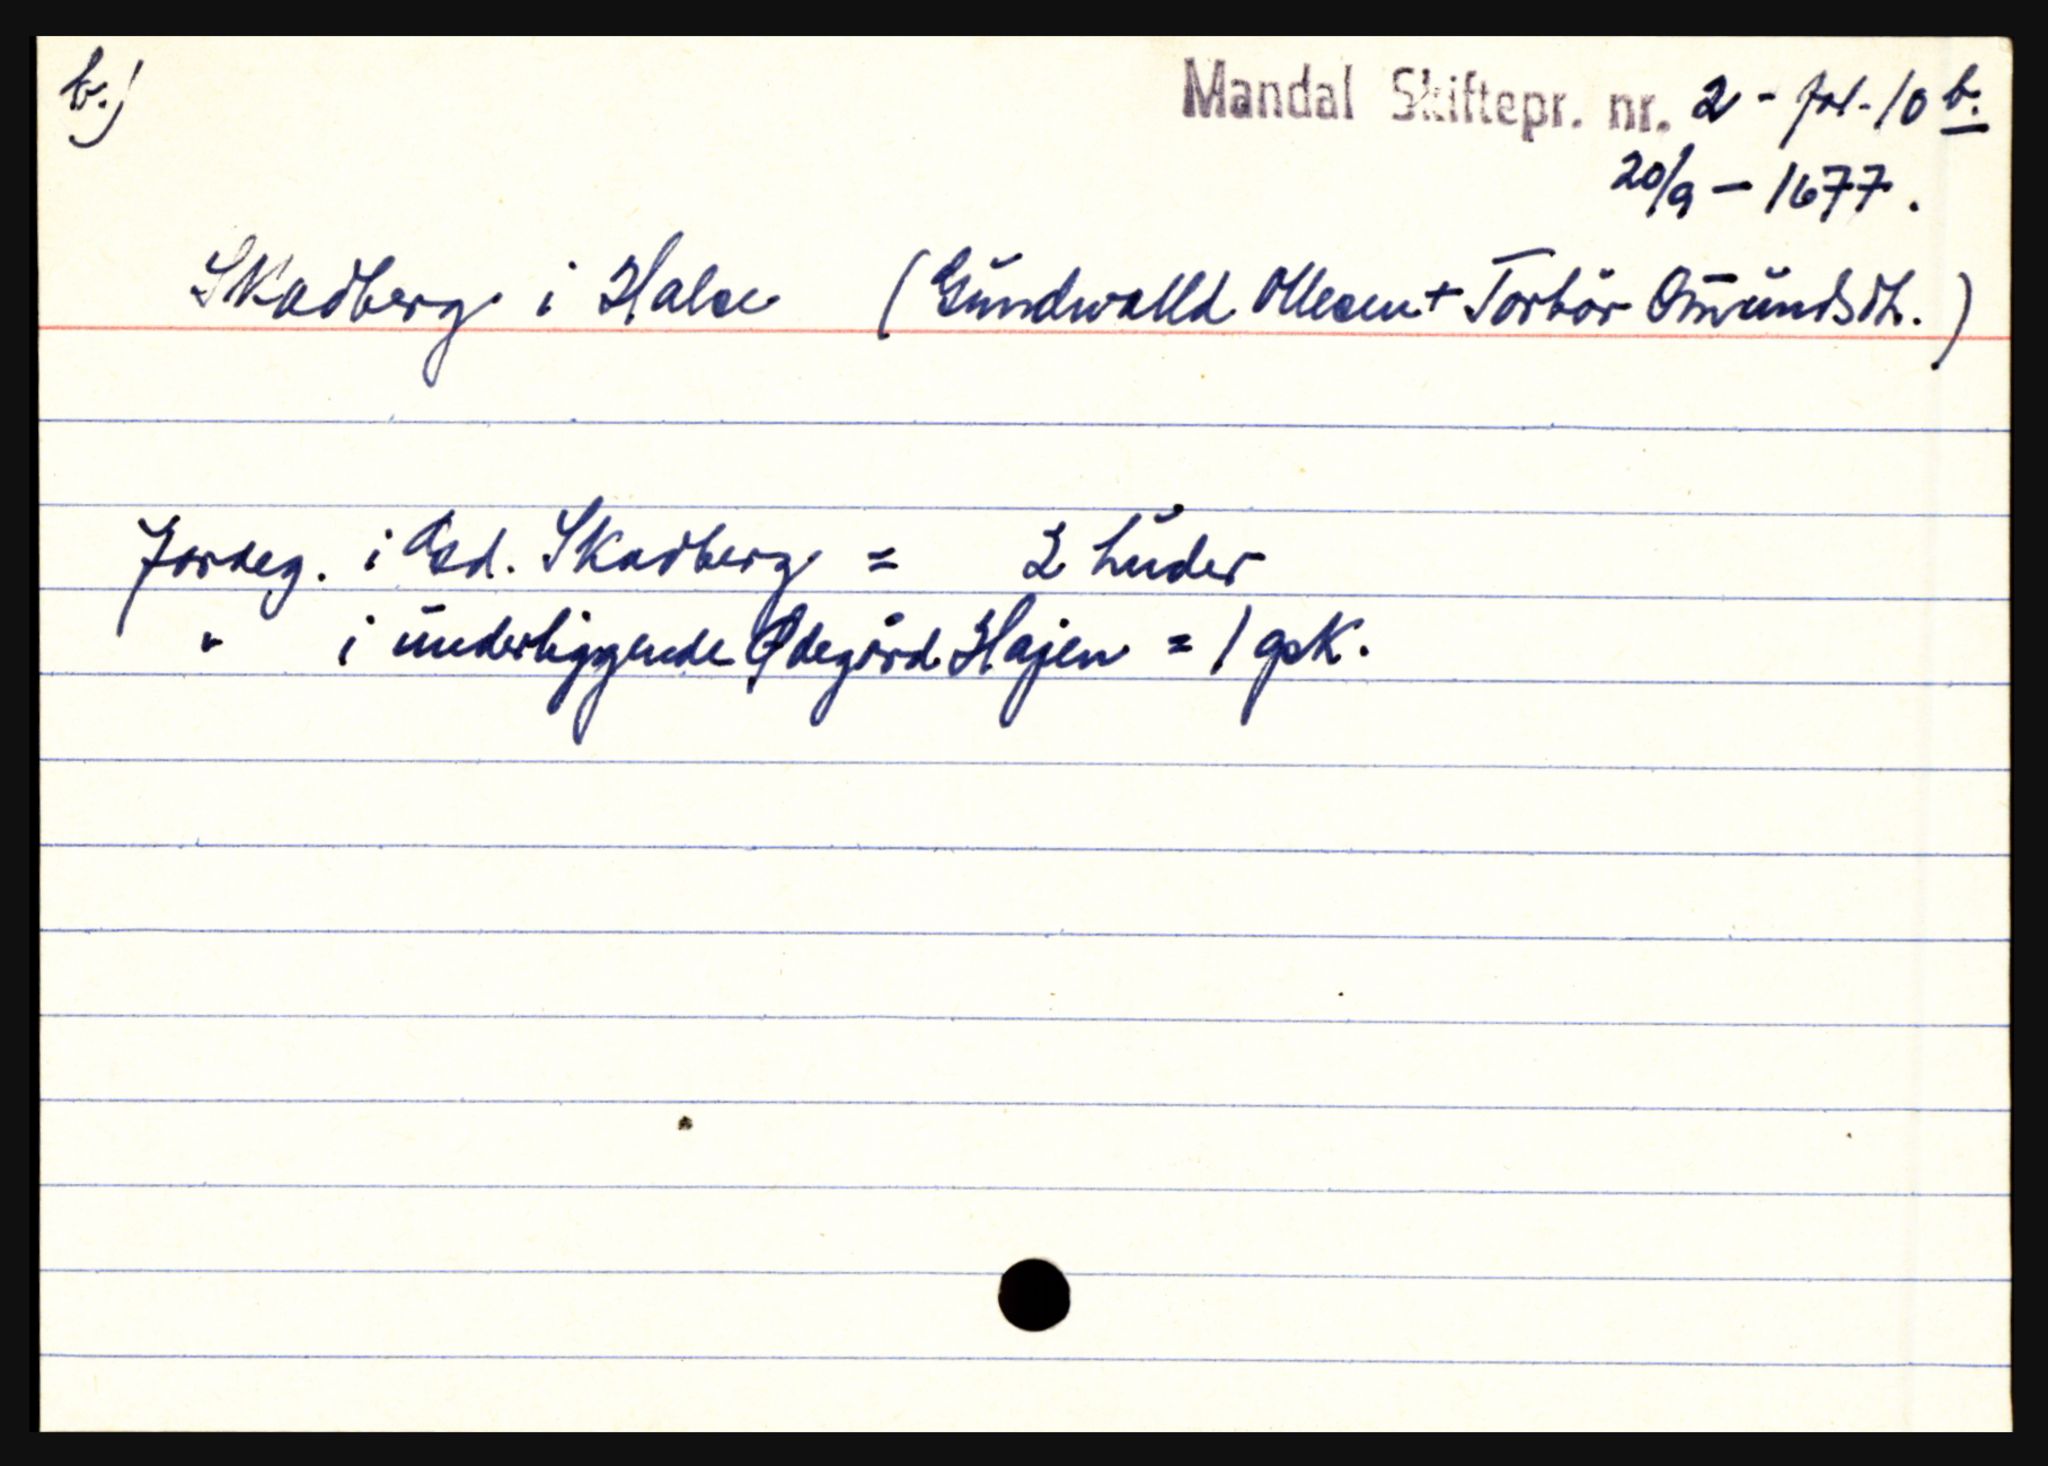 b.)
Mandal Skiftepr. nr. 2 - fol. 10 b.
20/9 - 1677.
Skadberg i Halse (Gundwalld Ollesen + Torbör Omundsdt.)
Jordeg. i Gsd. Skadberg = 2 huder
" i underliggende Ødegård Hajen = 1 gsk.